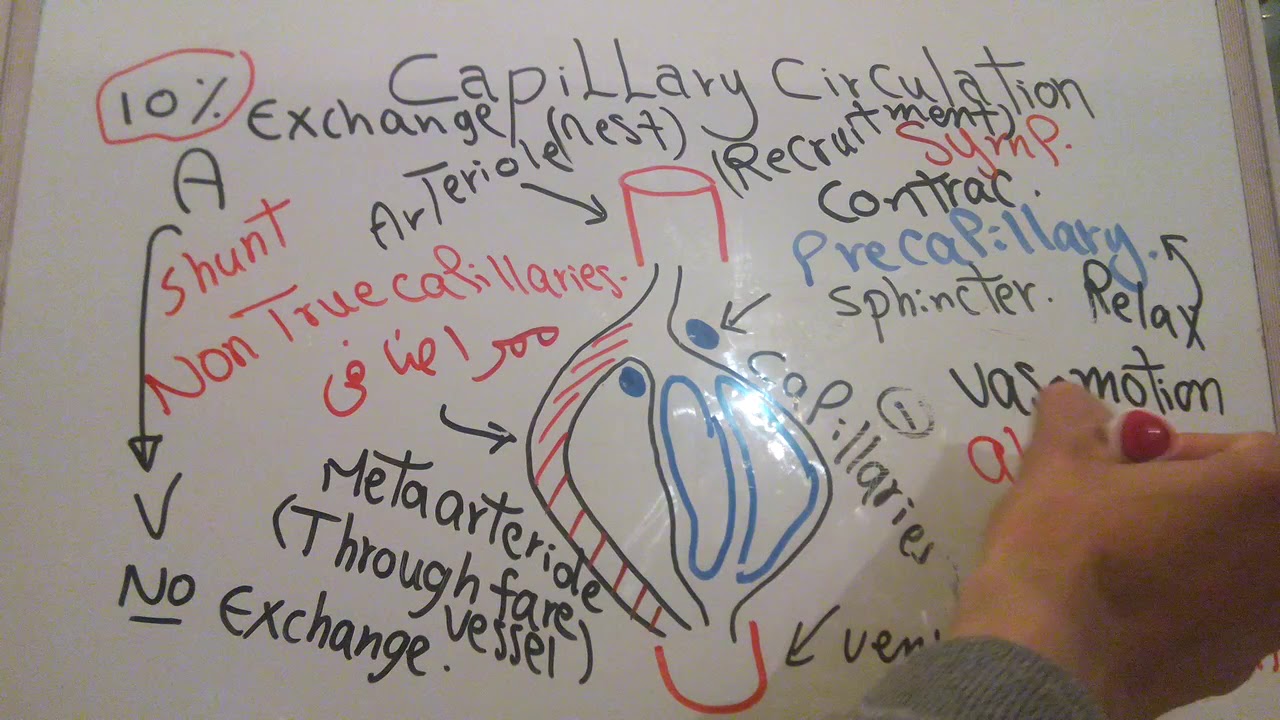 Capillary Circulation
10% Exchange (nest)
(Recruitment)
A
Arteriole
Symp.
Contrac.
Precapillary
sphincter.
Relax
Shunt
Non True capillaries.
Capillaries
1
vasomotion
Metaarteriole
(Through fare
vessel)
V
No Exchange.